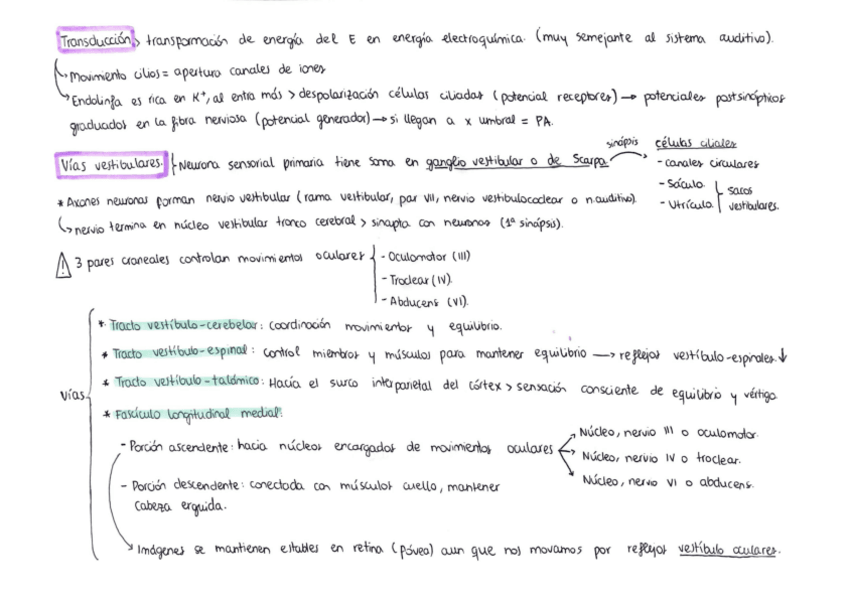 Transducción > transformación de energía del E en energía electroquímica. (muy semejante al sistema auditivo).
Movimiento cilios = apertura canales de iones
Endolinfa es rica en K+, al entra más > despolarización células ciliadas (potencial receptores) → potenciales postsinápticos
graduados en la fibra nerviosa (potencial generador) → si llegan a x umbral = PA.
Vías vestibulares. Neurona sensorial primaria tiene soma en ganglio vestibular o de Scarpa sinápsis células ciliales
- canales circulares
- Sáculo.
- Utrículo.
sacos
vestibulares.
* Axones neuronas forman nervio vestibular (rama vestibular, par VII, nervio vestibulococlear o n.auditivo).
nervio termina en núcleo vestibular tronco cerebral > sinapta con neuronas (1ª sinápsis).
3 pares craneales controlan movimientos oculares
- Oculomotor (III)
- Troclear (IV).
- Abducens (VI).
Vías
* Tracto vestíbulo-cerebelar: coordinación movimientos y equilibrio.
* Tracto vestíbulo-espinal: control miembros y músculos para mantener equilibrio → reflejos vestíbulo-espinales ↓
* Tracto vestíbulo-talámico: Hacía el surco interparietal del córtex > sensación consciente de equilibrio y vértigo
* Fascículo longitudinal medial:
- Porción ascendente: hacia núcleos encargados de movimientos oculares
Núcleo, nervio III o oculomotor.
Núcleo, nervio IV o troclear.
Núcleo, nervio VI o abducens.
- Porción descendente: conectada con músculos cuello, mantener
cabeza erguida.
Imágenes se mantienen estables en retina (fóvea) aun que nos movamos por reflejos vestíbulo oculares.